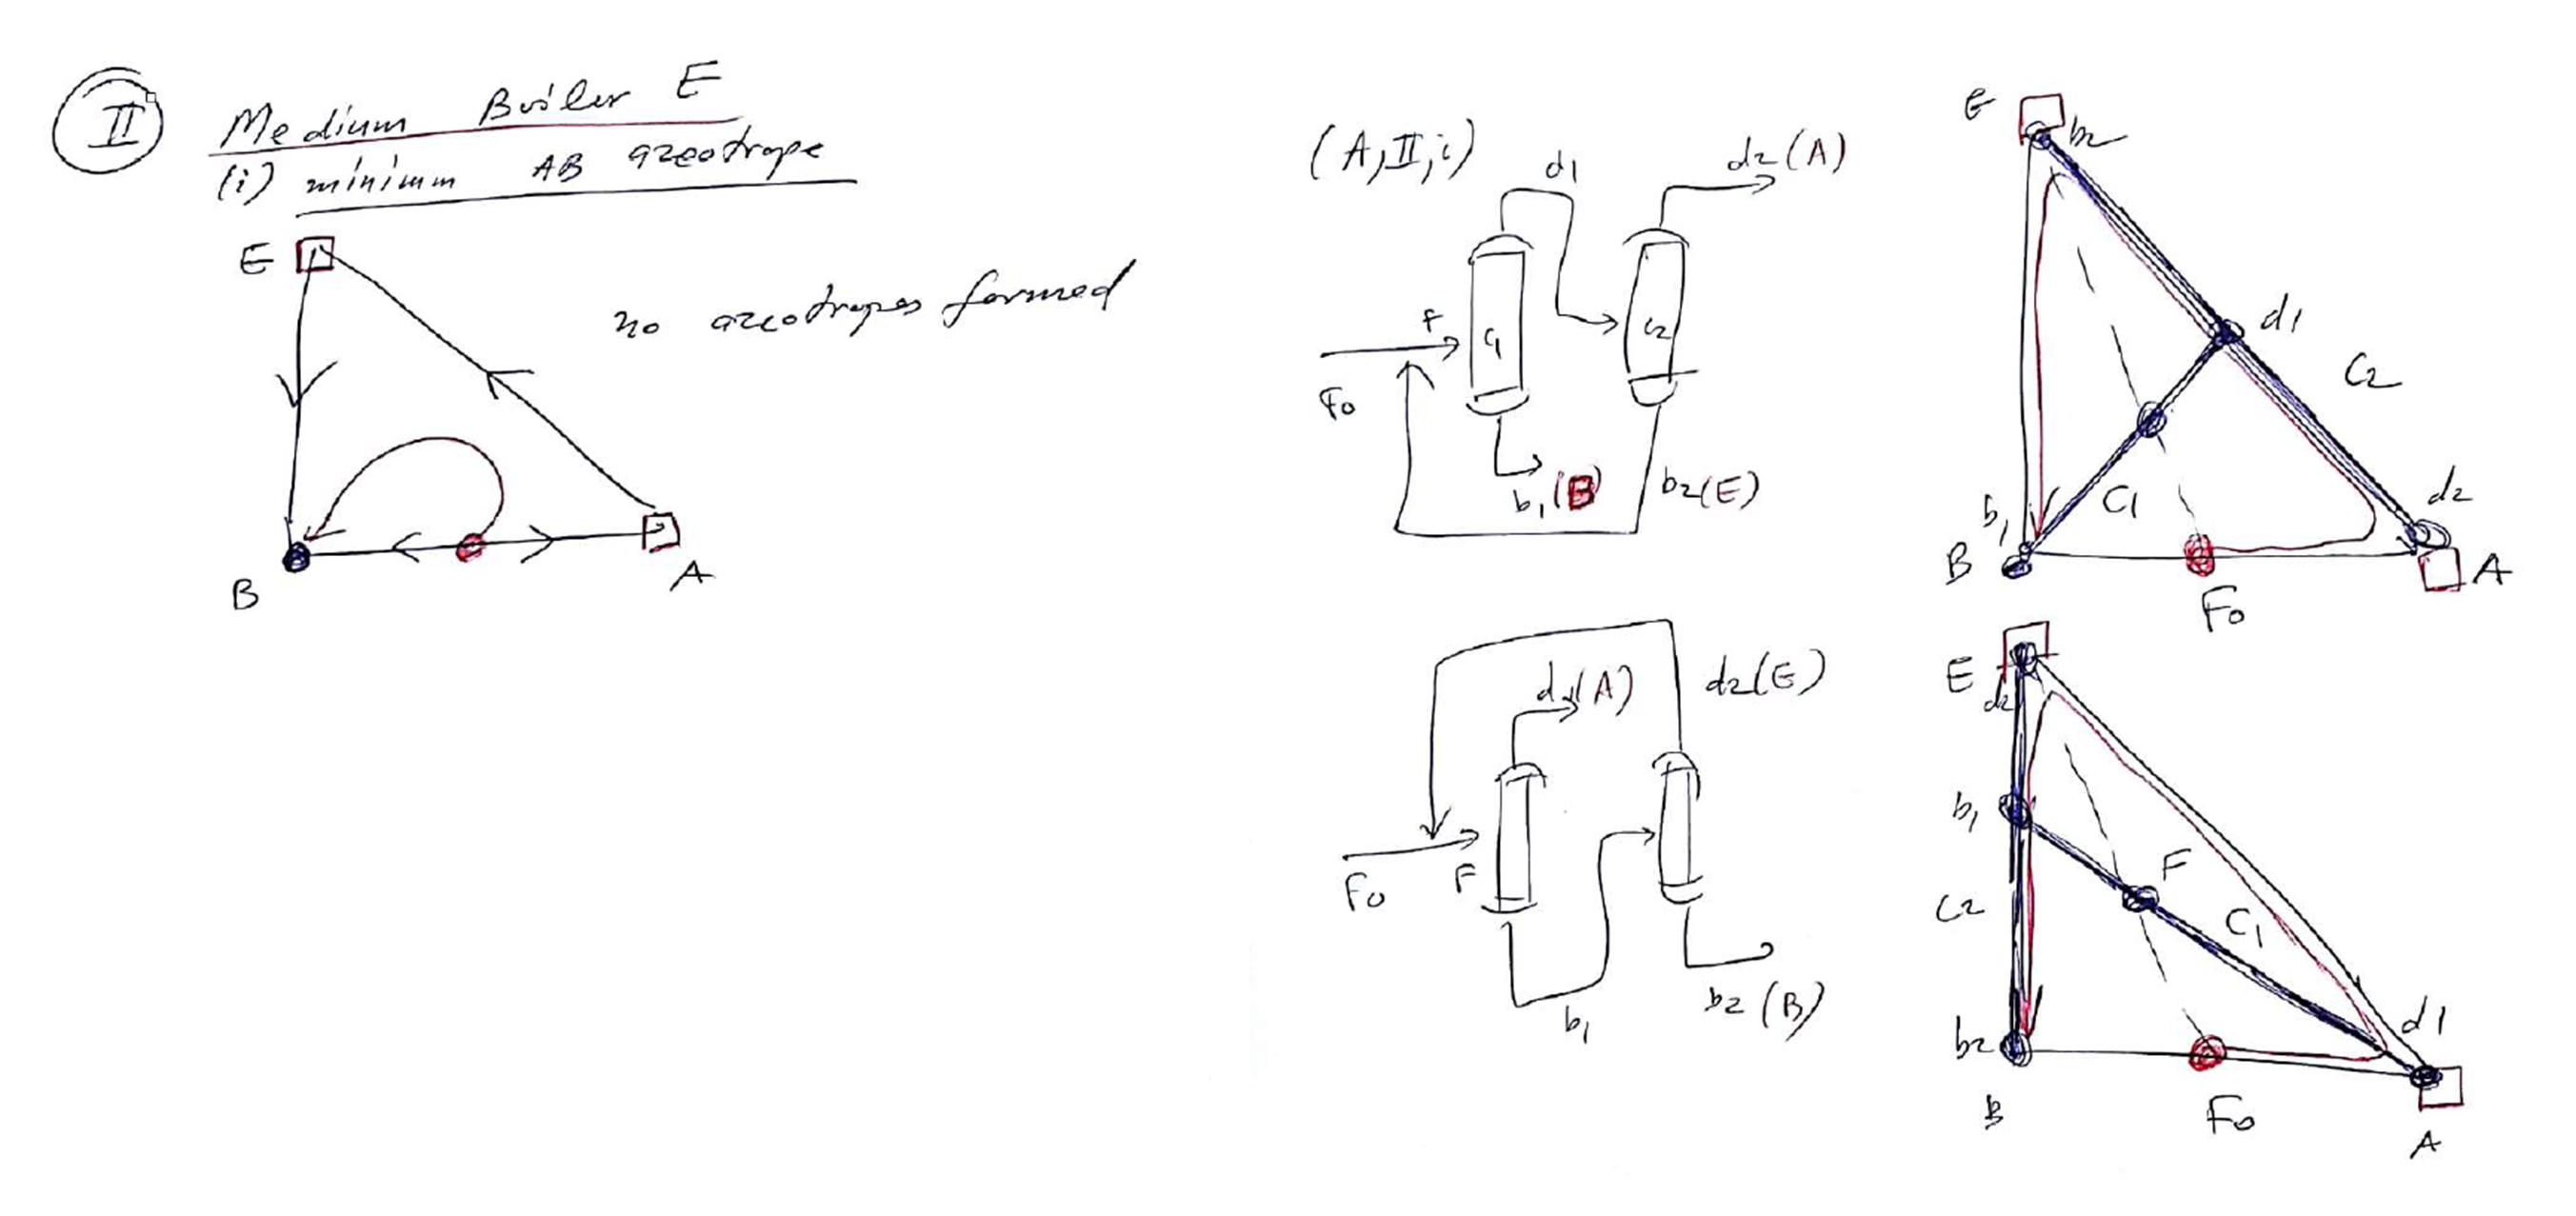 II
Medium Boiler E
(i) minimum AB azeotrope
E
no azeotropes formed
B
A
(A, II, i)
d1
d2 (A)
F
F0
C1
C2
b1 (B)
b2 (E)
E
b2
d1
C2
C1
d2
b1
B
F0
A
d1 (A)
d2 (E)
F0
F
b1
b2 (B)
E
d2
b1
F
C2
C1
d1
b2
B
F0
A